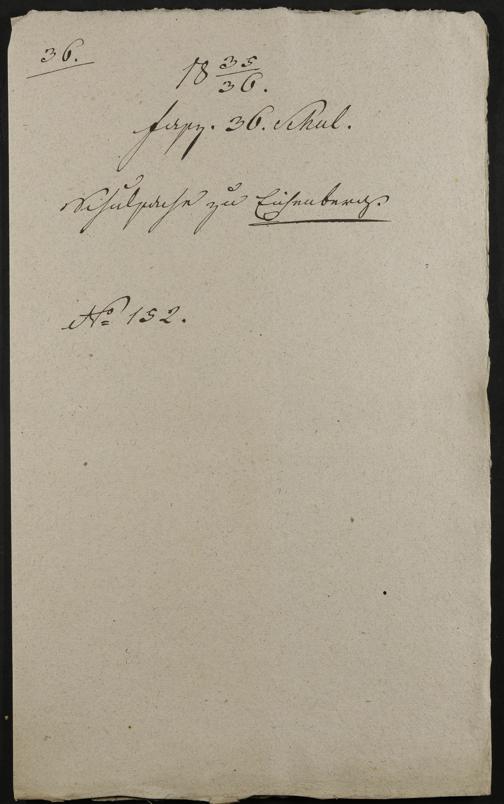 36.
18 35/36.
Fasz. 36. Schul.
Schulsache zu Eichenberg.
No 152.